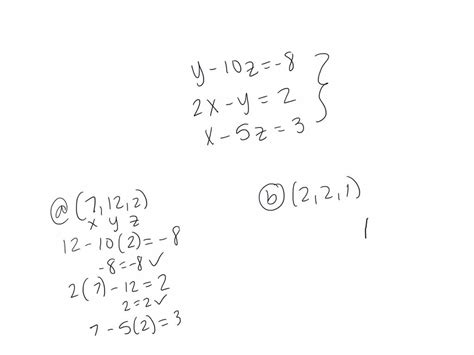 y-10z=-8
2x-y=2
x-5z=3
ⓐ (7,12,2)
x y z
12-10(2)=-8
-8=-8 ✓
2(7)-12=2
2=2 ✓
7-5(2)=3
ⓑ (2,2,1)